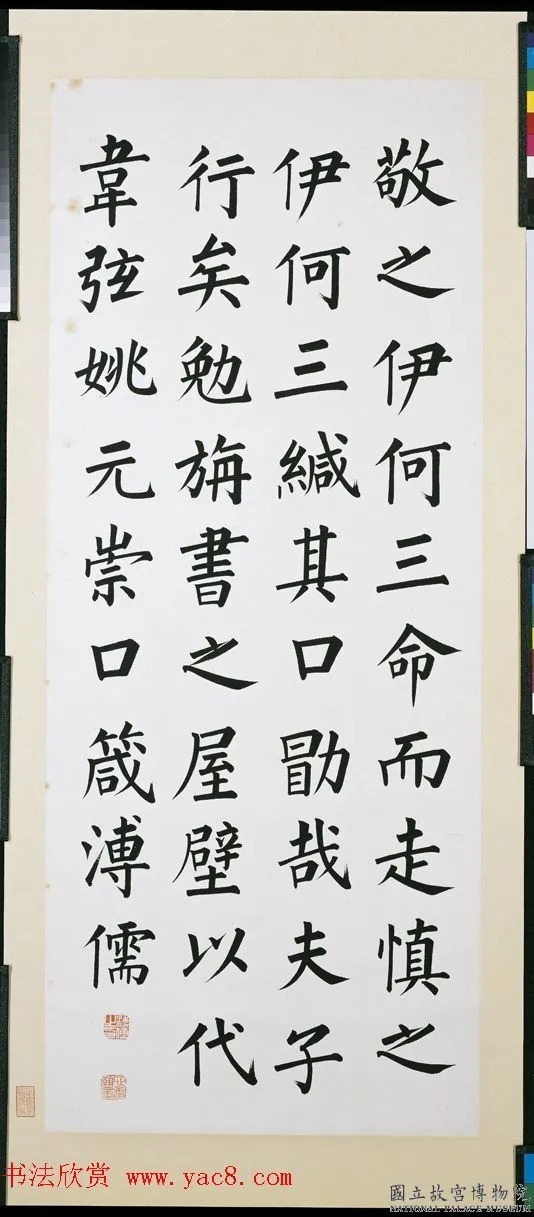 敬之伊何三命而走慎之
伊何三緘其口勖哉夫子
行矣勉旃書之屋壁以代
韋弦姚元崇口箴溥儒
书法欣赏 www.yac8.com
國立故宮博物院
NATIONAL PALACE MUSEUM